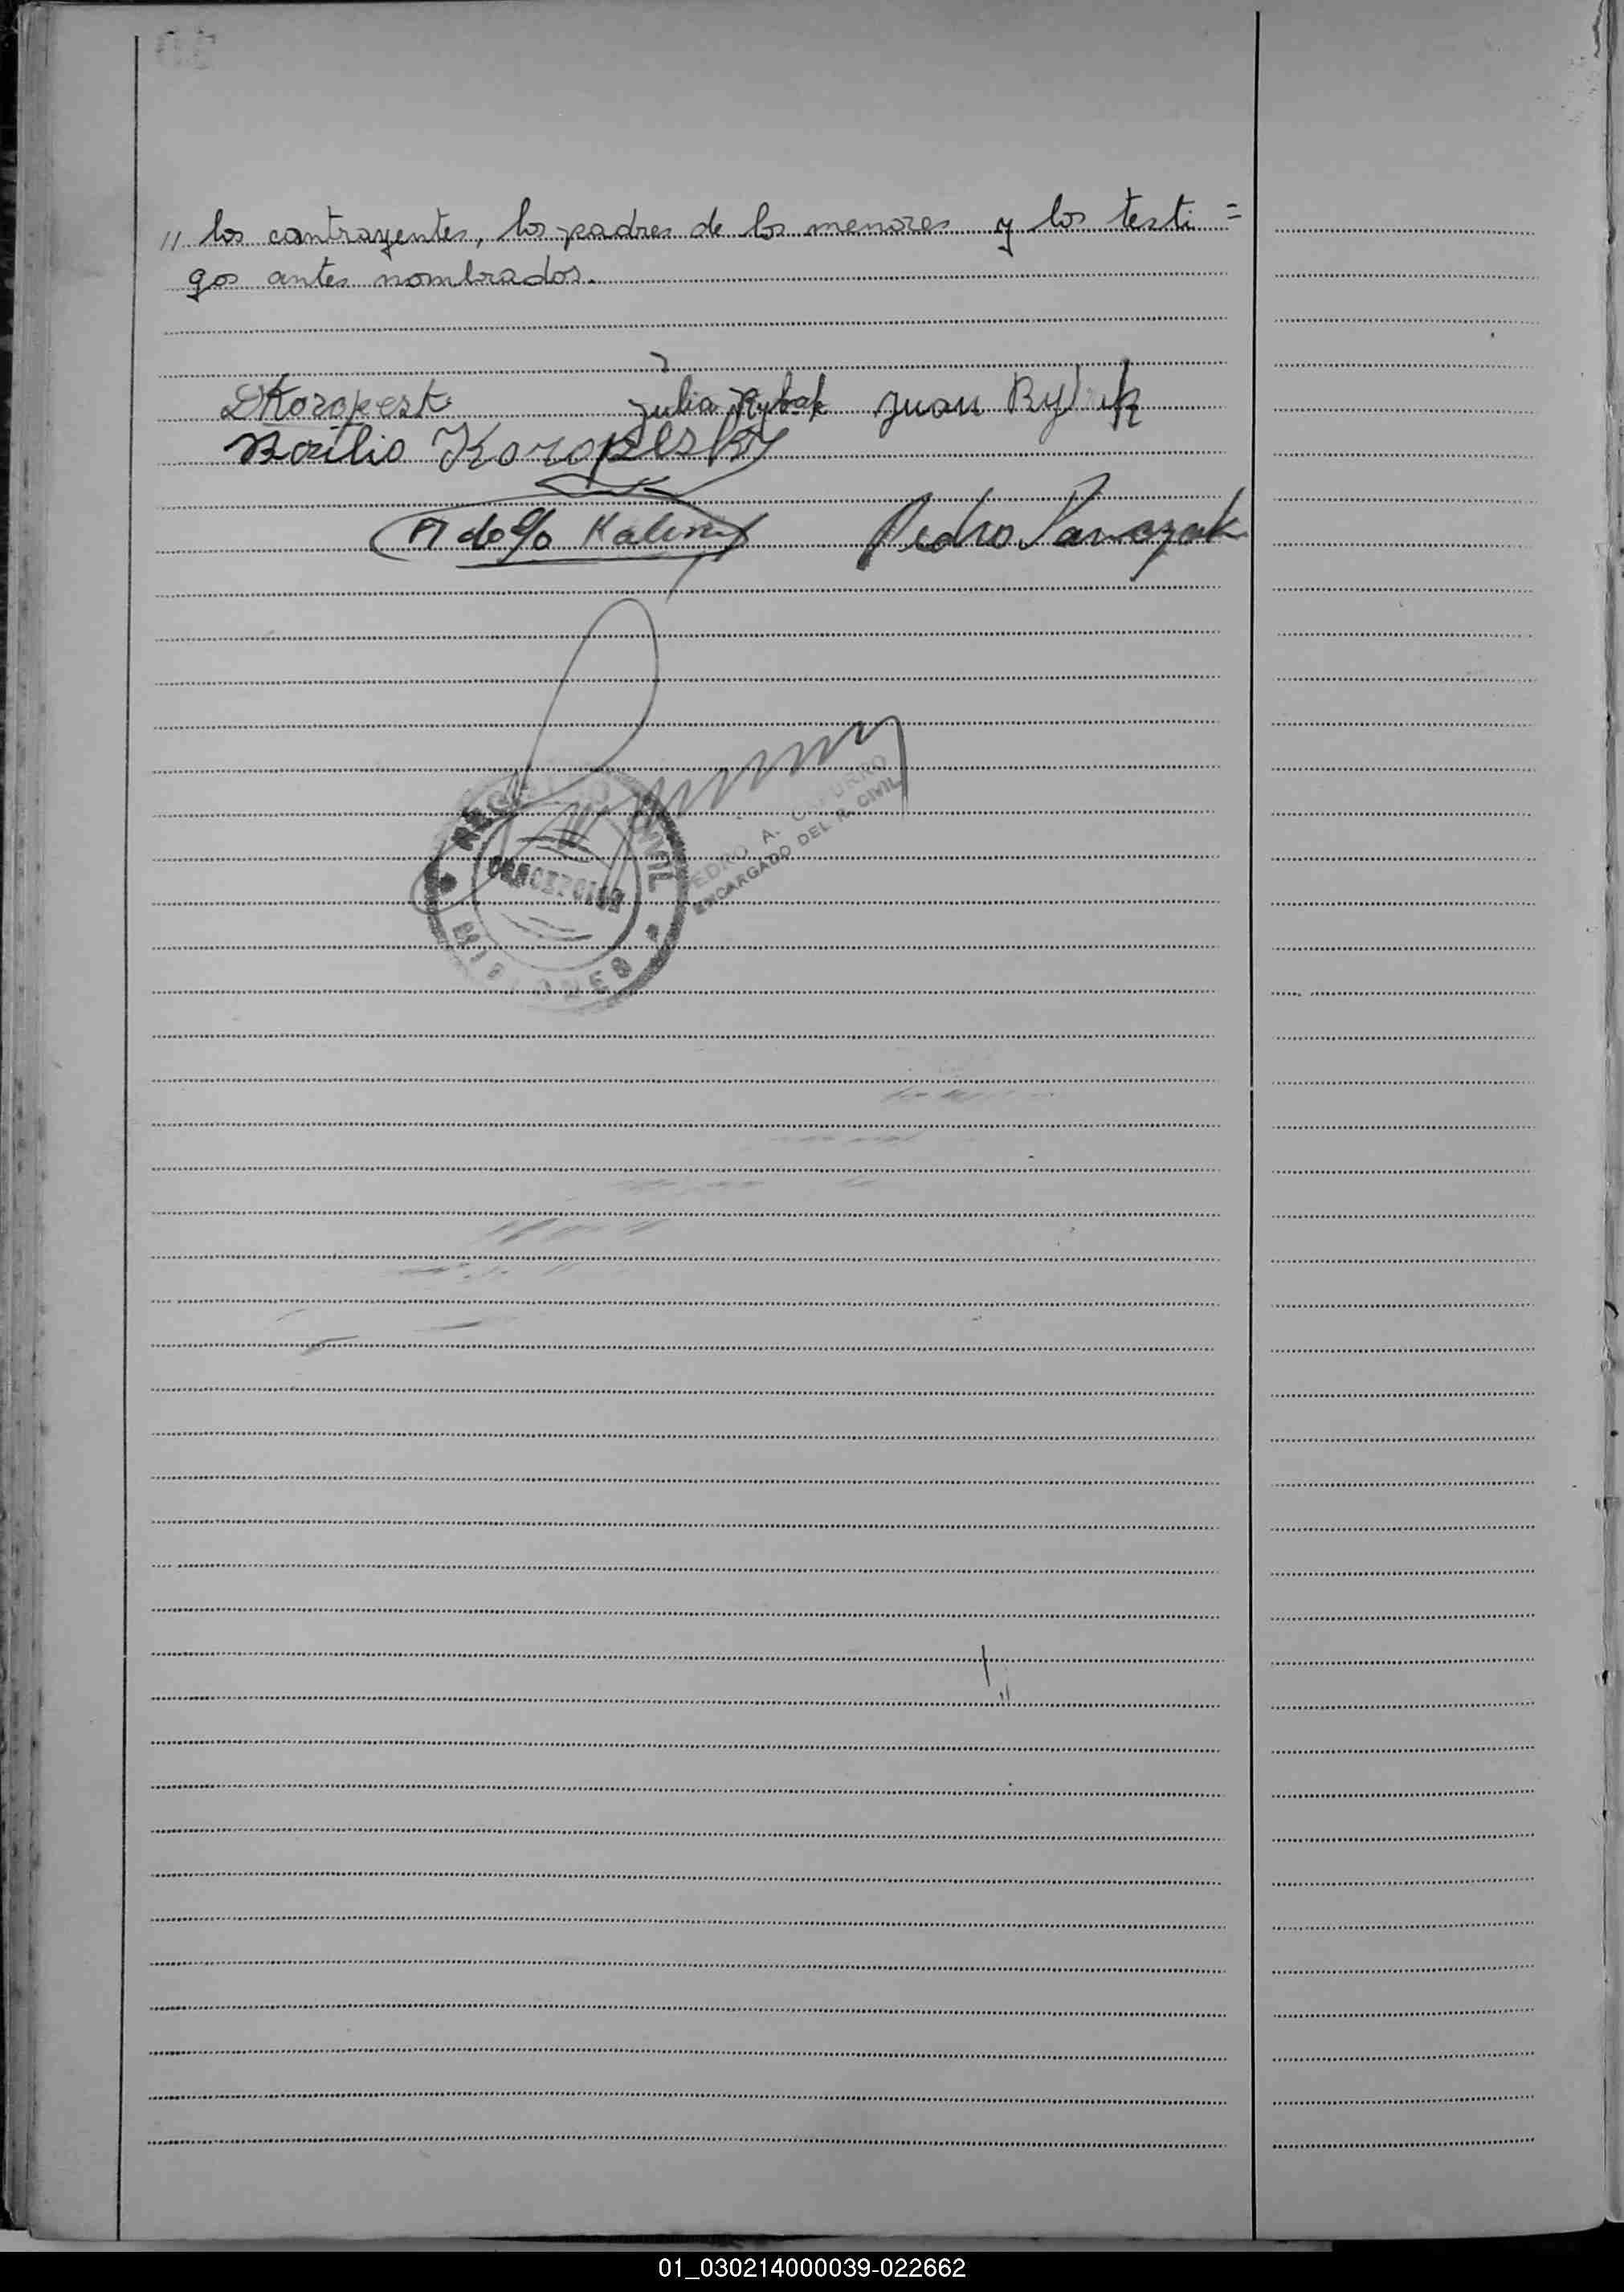 " los contrayentes, los padres de los menores y los testi =
gos antes nombrados.
Julia Rybak Juan Rybak
Basilio Koropesky
Adolfo Kaliny Pedro Panczak
REGISTRO CIVIL
CONCEPCION
MISIONES
PEDRO A.
ENCARGADO DEL R. CIVIL
01_030214000039-022662